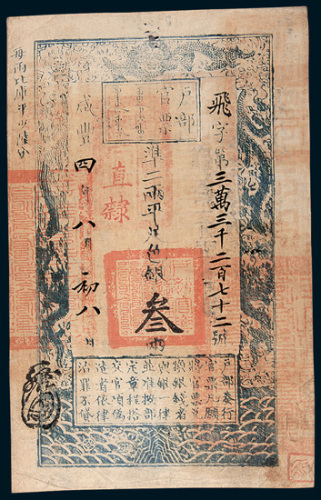 戶部
官票
飛字第三萬三千二百七十二號
準二兩平足色銀叁兩
直隸
咸豐四年八月初八日
每兩比庫平少陸分
戶部奏行
官票凡願
將官票兌
換銀錢者
與銀一律
並准按部
定章程搭
交官項偽
造者依律
治罪不貸